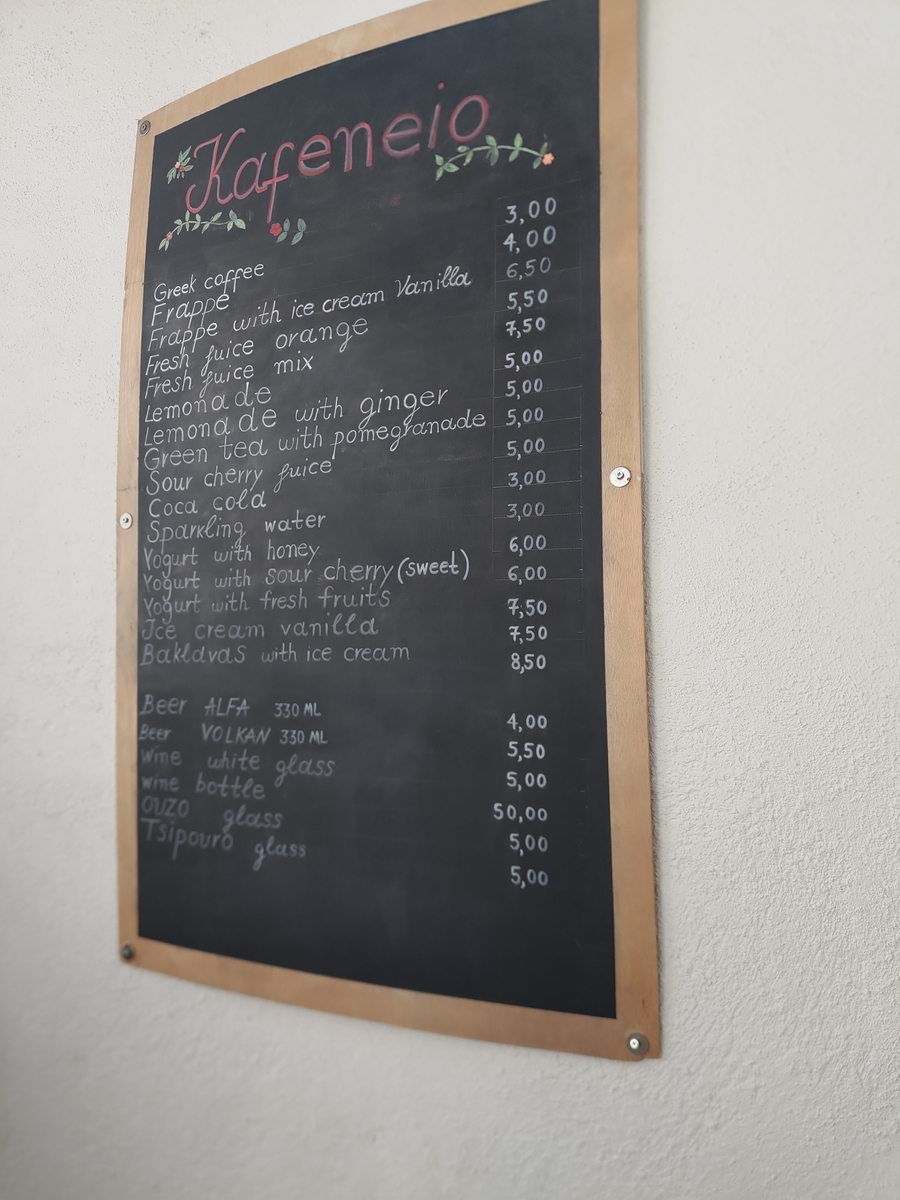 Kafeneio
Greek coffee 3,00
Frappe 4,00
Frappe with ice cream Vanilla 6,50
Fresh juice orange 5,50
Fresh juice mix 7,50
Lemonade 5,00
Lemonade with ginger 5,00
Green tea with pomegranade 5,00
Sour cherry juice 5,00
Coca cold 3,00
Sparkling water 3,00
Yogurt with honey 6,00
Yogurt with sour cherry (sweet) 6,00
Yogurt with fresh fruits 7,50
Ice cream vanilla 7,50
Baklavas with ice cream 8,50
Beer ALFA 330 ML 4,00
Beer VOLKAN 330 ML 5,50
wine white glass 5,00
wine bottle 50,00
OUZO glass 5,00
Tsipouro glass 5,00